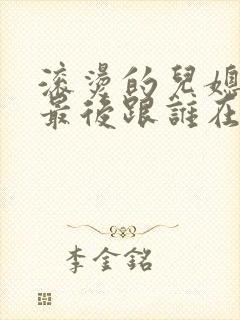 滚燙的兒媳
最後跟誰在
李金銘